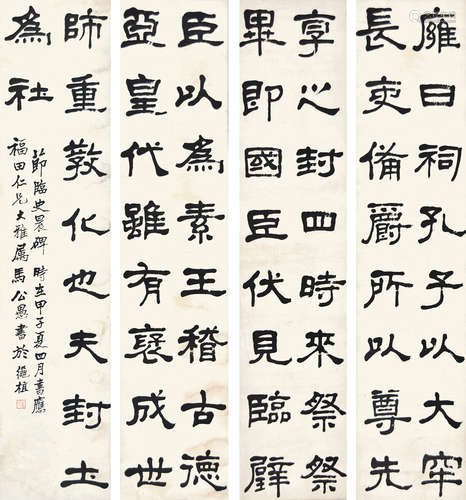 廱日祠孔子以大牢
長吏備爵所以尊先
享之封四時來祭祭
畢即國臣伏見臨辟
臣以為素王稽古德
亞皇代雖有褒成世
師重敎化也夫封土
為社
節臨史晨碑 時在甲子夏四月書應
福田仁兄大雅属 馬公愚書於繼植